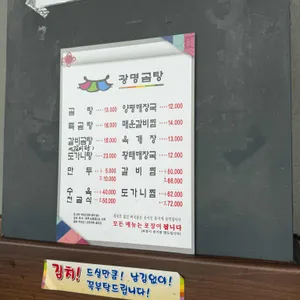 광명곰탕
곰 탕 13,000
특곰탕 16,000
갈비곰탕 15,000
도가니탕
만 두 5,000
10,000
수 육 40,000
전 골 50,000
양평해장국 12,000
매운갈비찜 14,000
육 개 장 13,000
황태해장국 12,000
갈 비 찜 50,000
66,000
도가니찜 62,000
72,000
모든 메뉴는 포장이 됩니다
김치! 드실만큼! 남김없이!
꼭부탁드립니다!